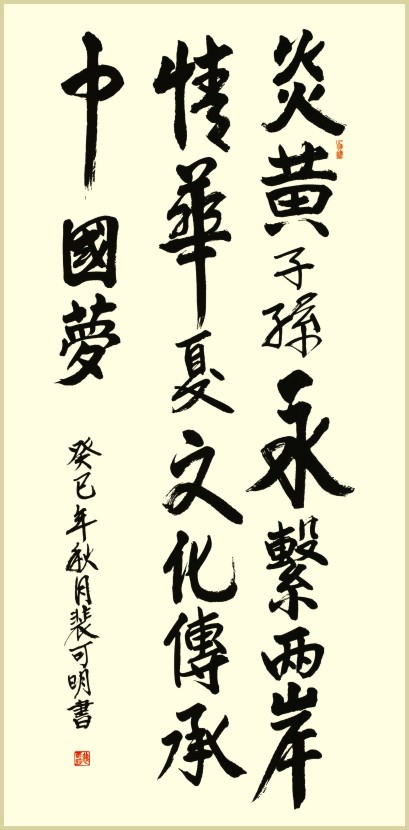 炎黄子孫永繫兩岸
情華夏文化傳承
中國夢
癸巳年秋月裴可明書